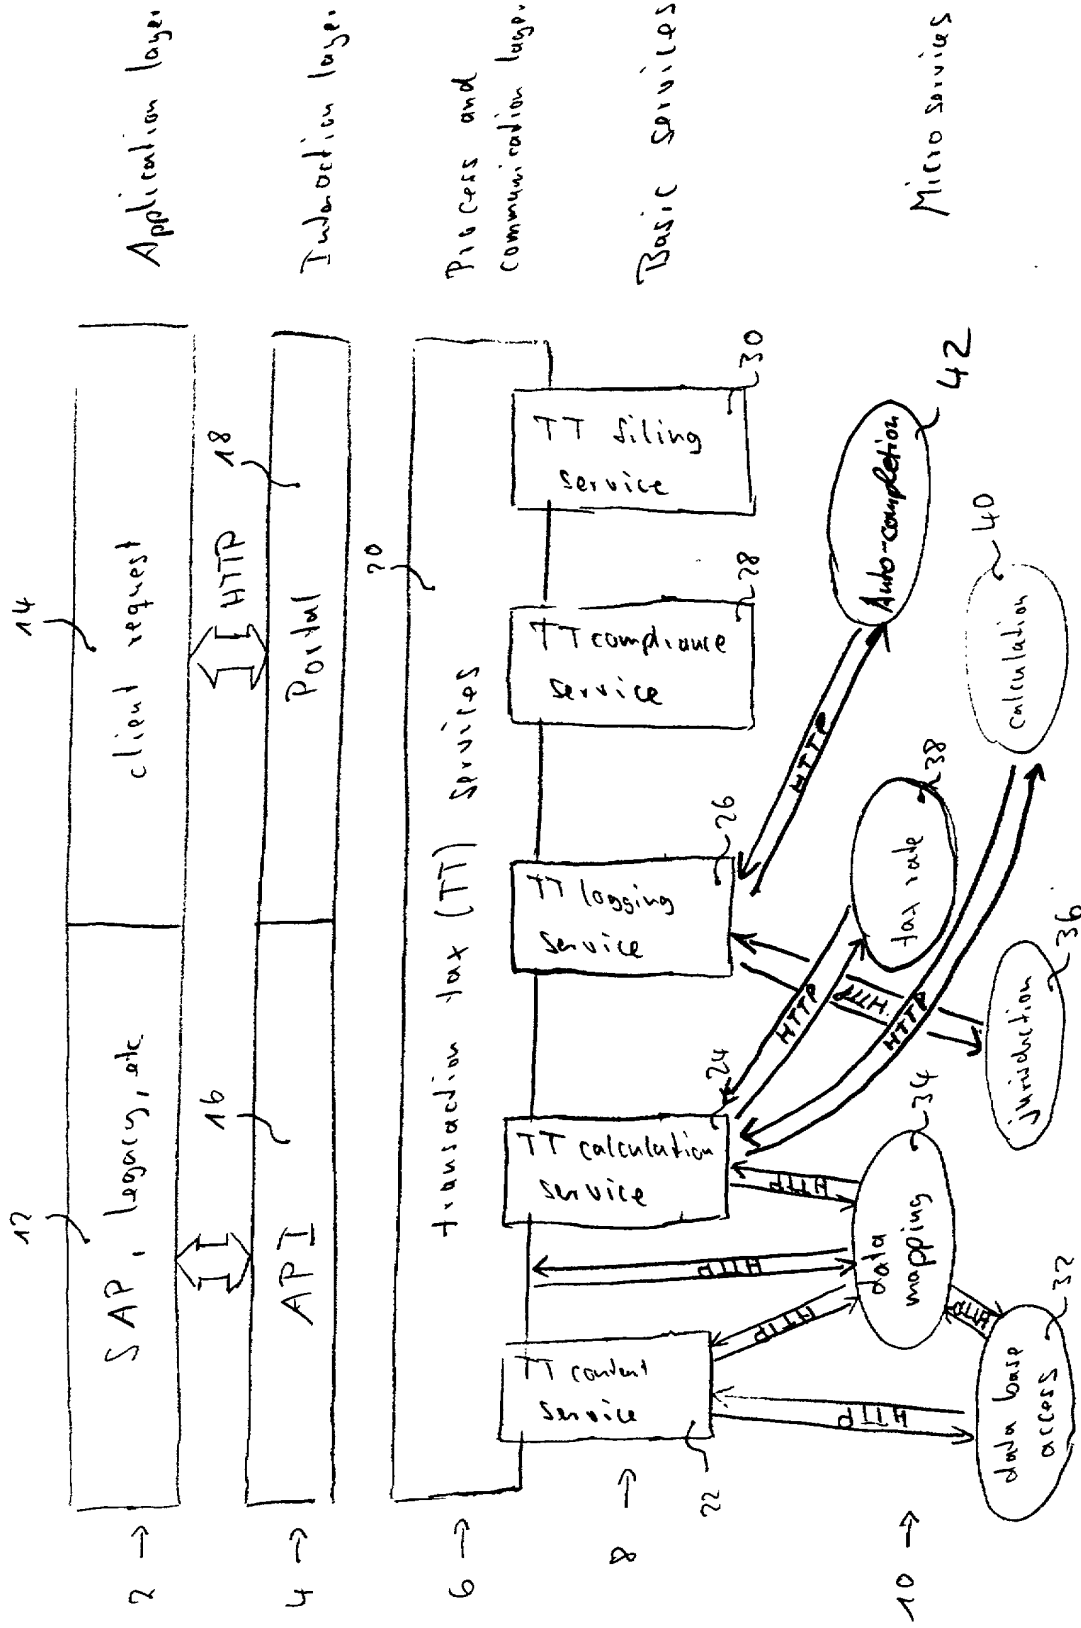 2 →
12
SAP, legacy, etc.
14
client request
Application layer
HTTP
4 →
16
API
18
Portal
Interaction layer
6 →
20
transaction tax (TT) services
Process and
communication layer
8 →
22
TT content
service
24
TT calculation
service
26
TT logging
service
28
TT compliance
service
30
TT filing
service
Basic services
HTTP
HTTP
HTTP
HTTP
HTTP
HTTP
HTTP
HTTP
HTTP
10 →
32
data base
access
34
data
mapping
36
jurisdiction
38
tax rate
40
calculation
42
Auto-completion
Micro services